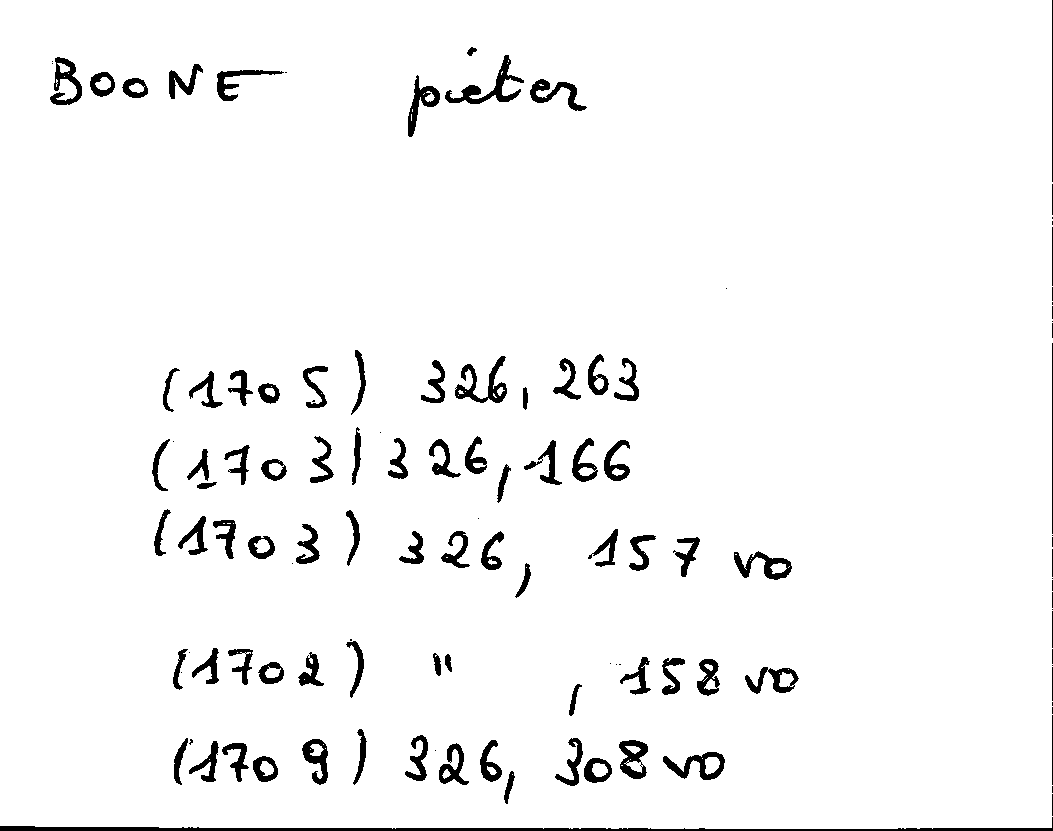 BOONE pieter
(1705) 326, 263
(1703) 326, 166
(1703) 326, 157 vo
(1702) " , 158 vo
(1709) 326, 308 vo